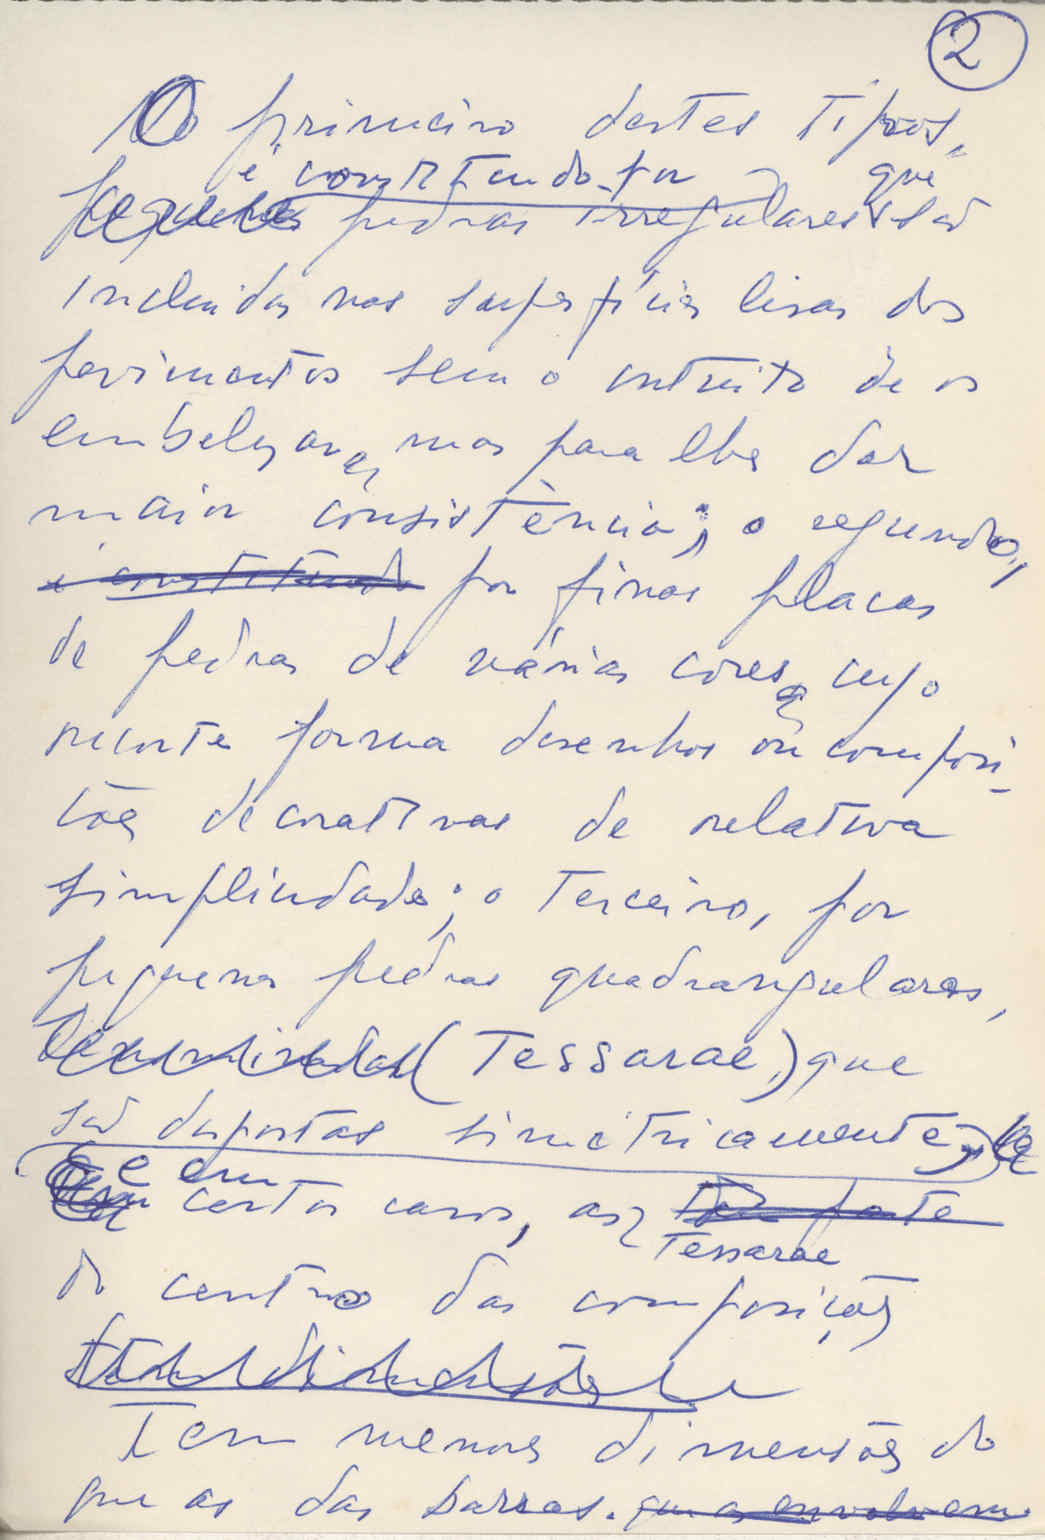 2
O primeiro destes tipos,
é constituido por que
pequenas pedras irregulares são
incluidas nas superficies lisas dos
pavimentos sem o intuito de os
embelezar, mas para lhes dar
maior consistência; o segundo,
é constituido por finas placas
de pedras de várias cores, cujo
recorte forma desenhos ou composi-
ções decorativas de relativa
simplicidade; o terceiro, por
pequenas pedras quadrangulares,
denominadas (Tessarae,) que
são dispostas simètricamente,
e em
certos casos, as parte
Tessarae
do centro das composições
dimensões
Tem menores dimensões do
que as das barras. que as envolvem.